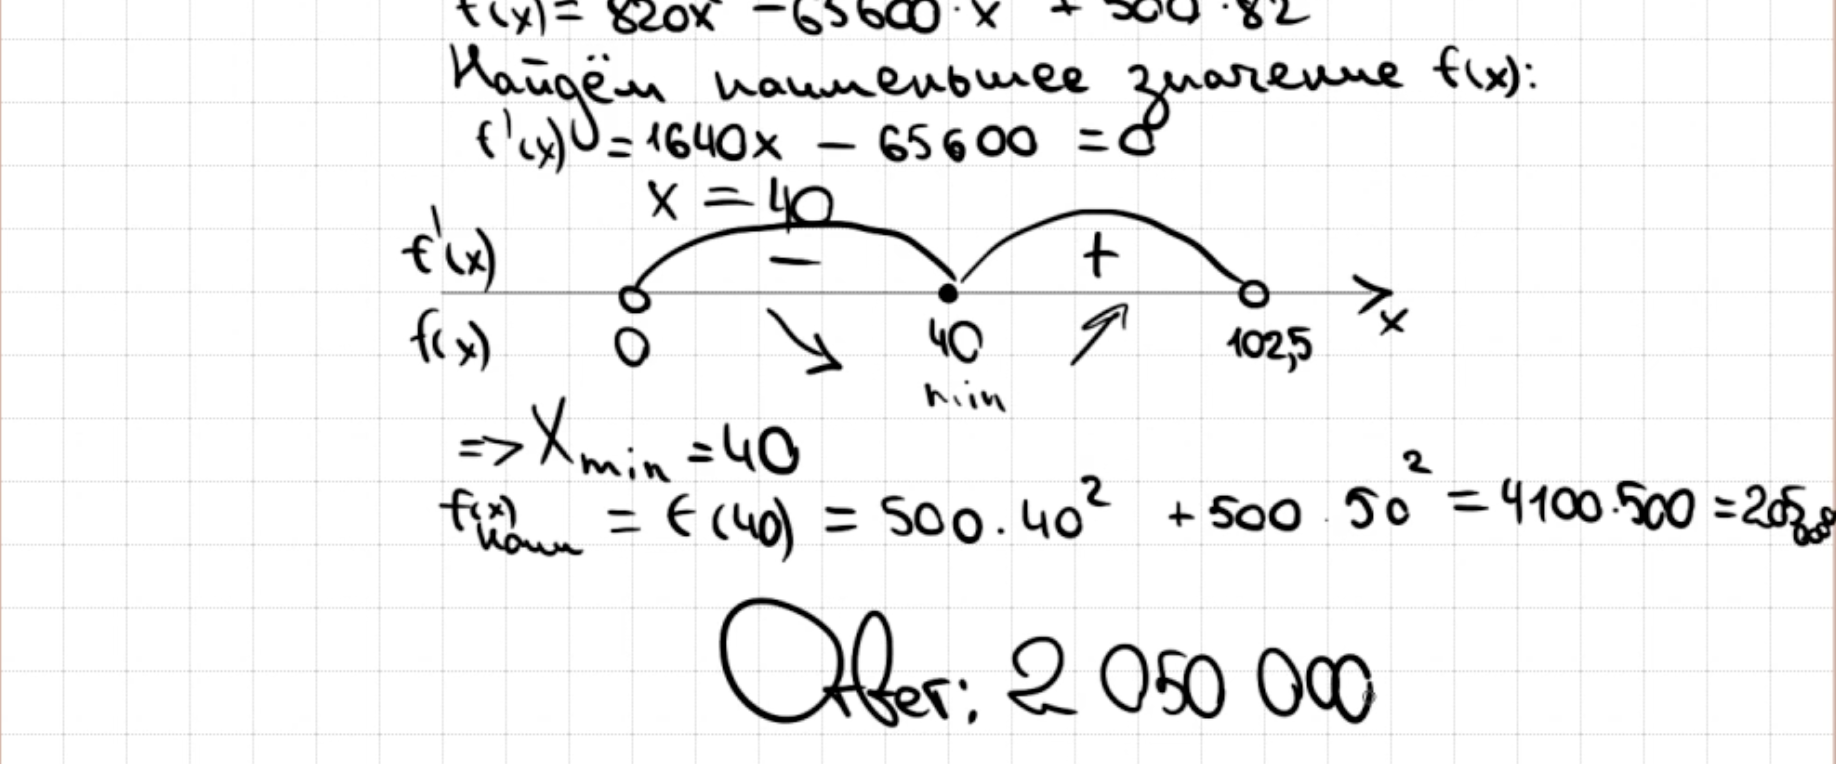 f(x) = 820x² - 65600·x + 500·82²
Найдём наименьшее значение f(x):
f'(x) = 1640x - 65600 = 0
x = 40
f'(x) - +
f(x) 0 40 102,5 x
min
=> Xmin = 40
f(x)наим = f(40) = 500·40² + 500·50² = 4100·500 = 2050000
Ответ: 2 050 000